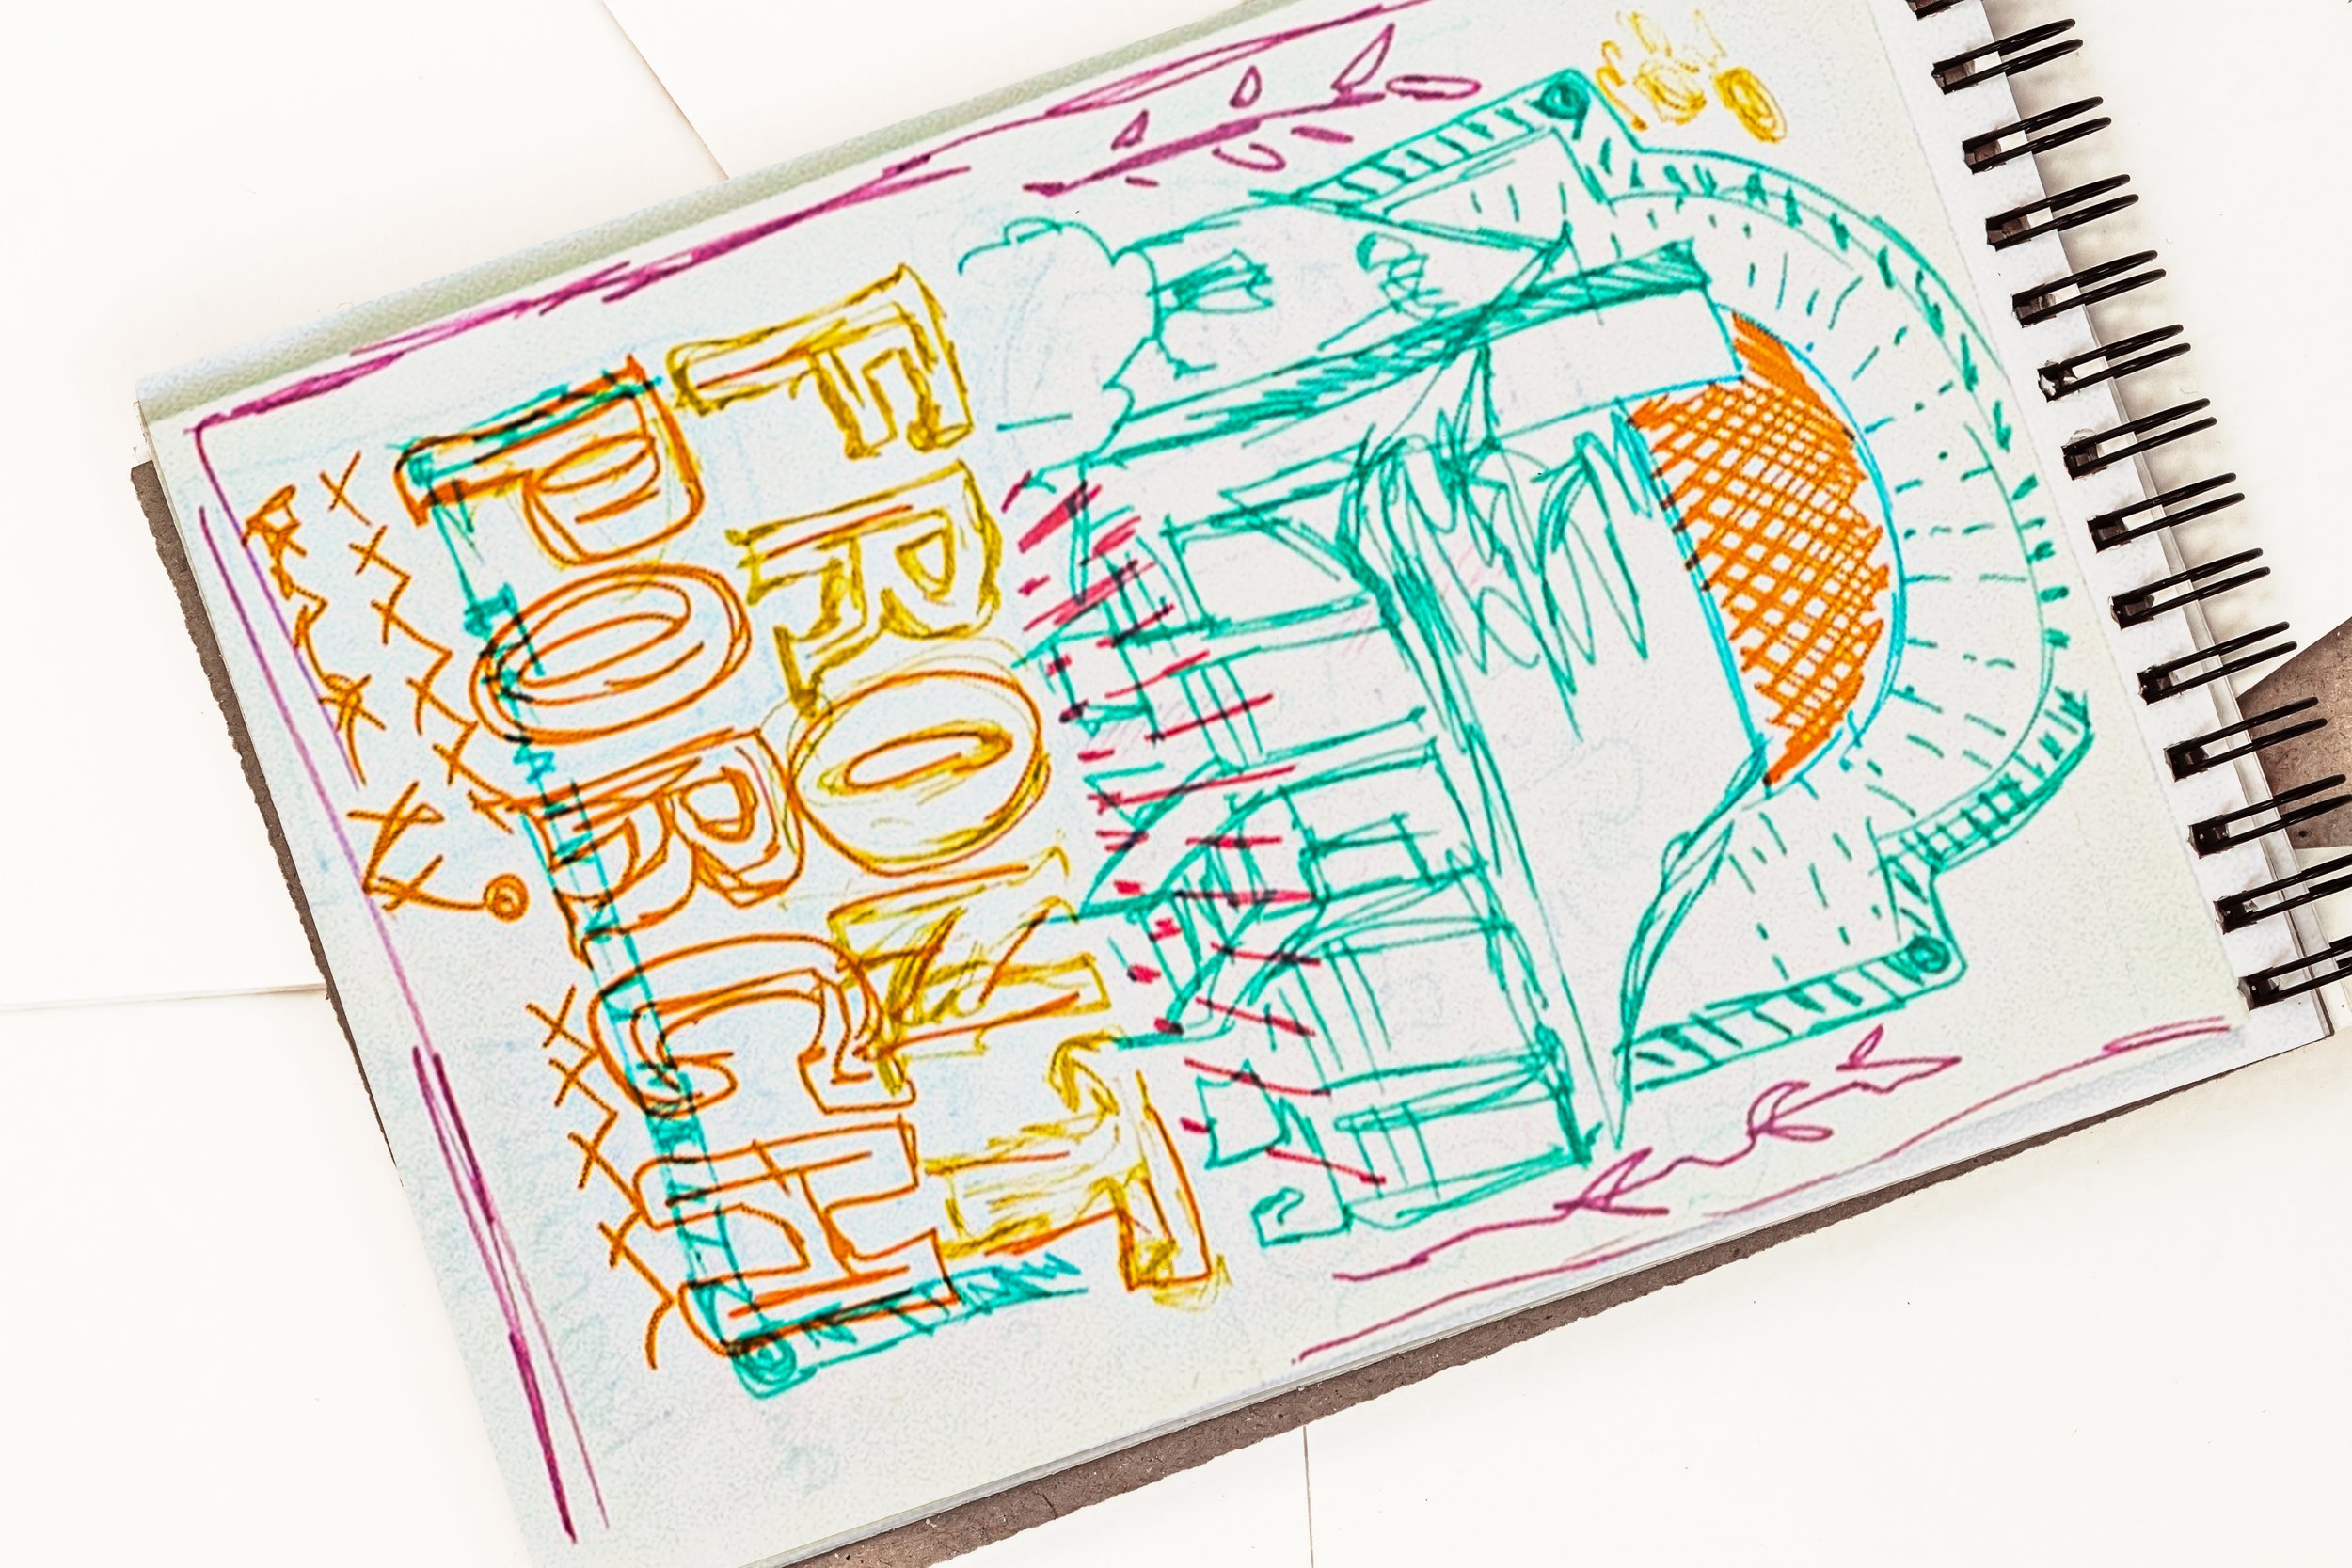 FRONT
PORCH